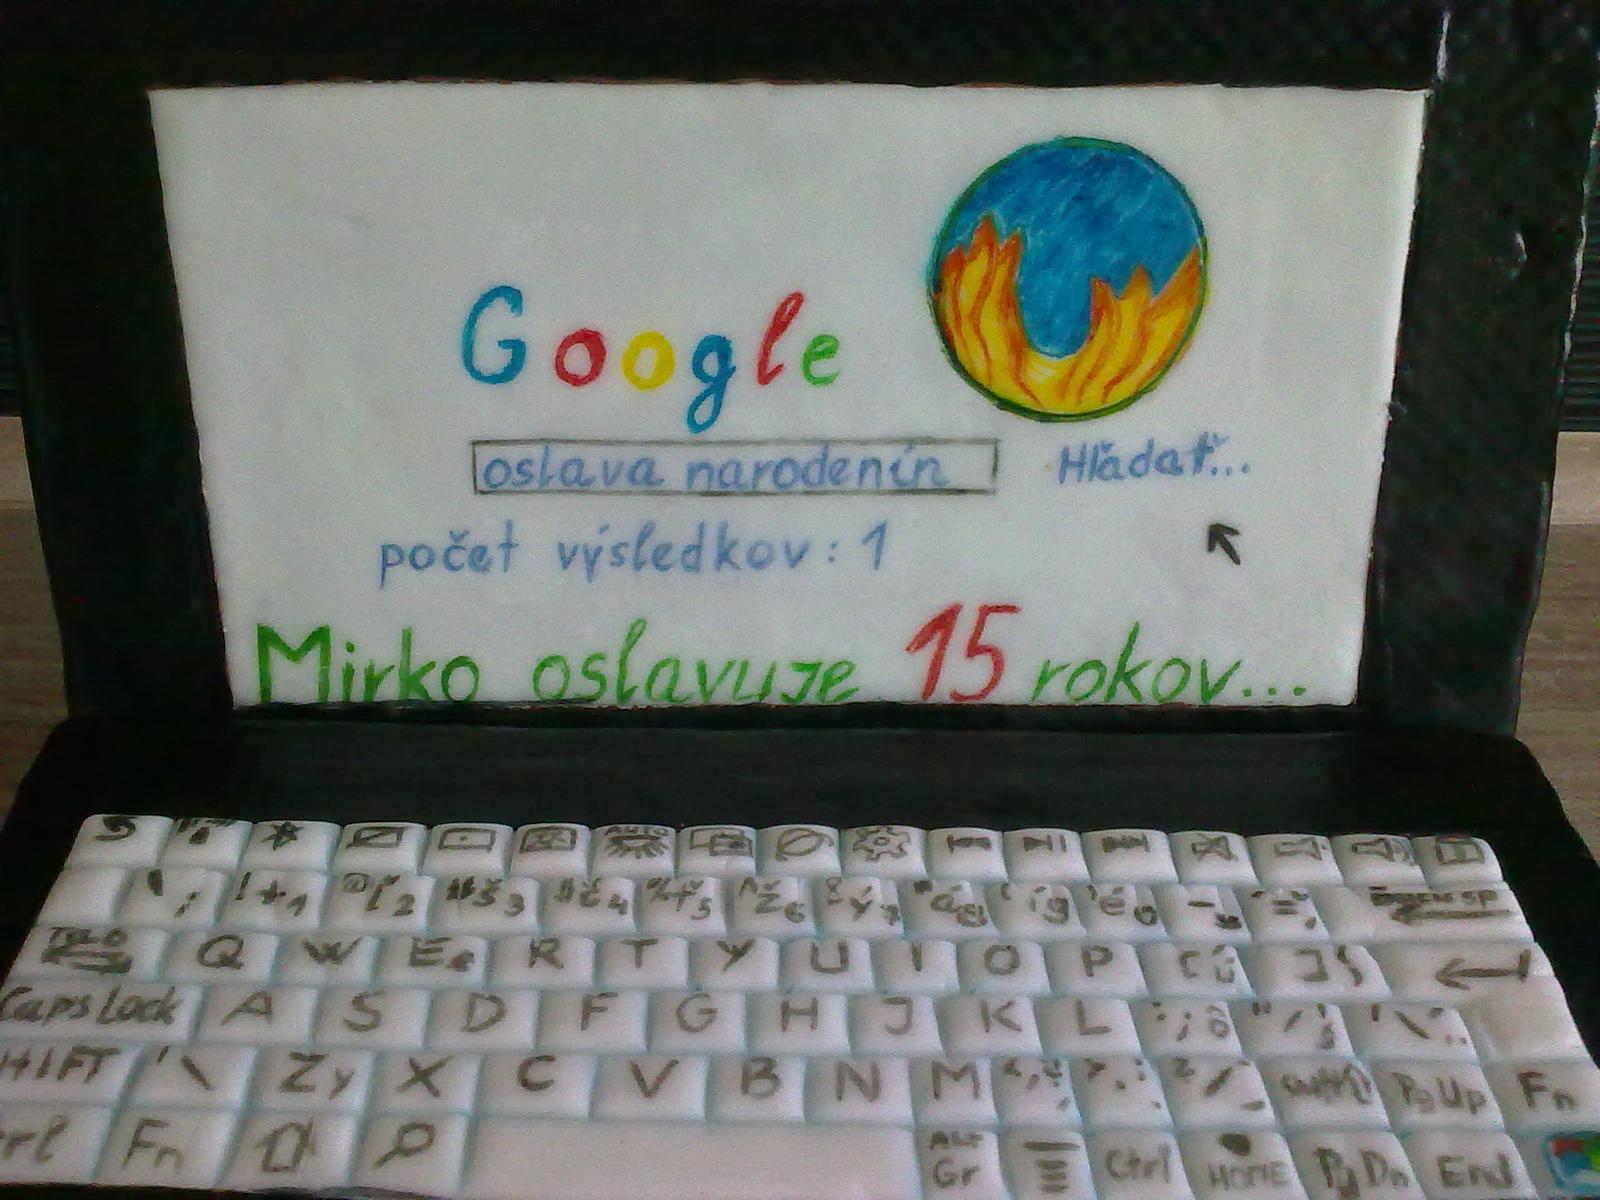 Google
oslava narodenín
Hľadať...
počet výsledkov: 1
Mirko oslavuje 15 rokov...
AUTO
! + 1
@ ľ 2
# š 3
č 4
% ť 5
^ ž 6
ý 7
á 8
í 9
é 0
Q W E € R T Y U I O P [ ú ] }
Caps Lock A S D F G H J K L ; ô
HIFT \ Z y X C V B N M Pg Up Fn
rl Fn Alt Gr Ctrl HOME Pg Dn End